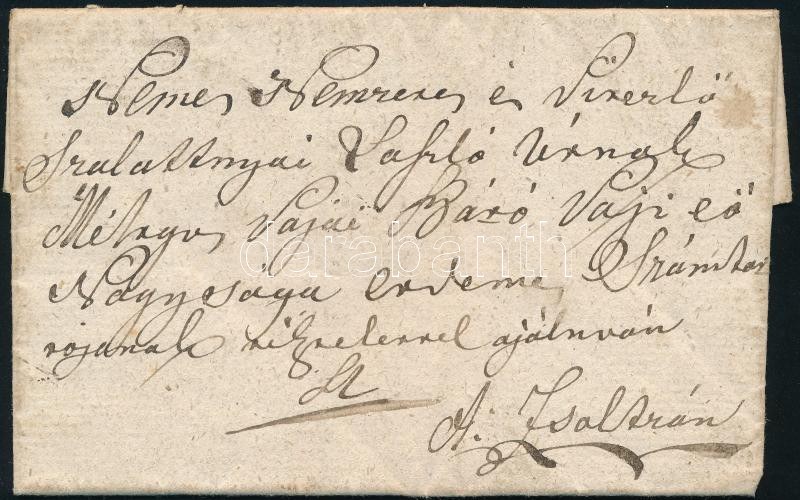 Nemes Nemzetes és Vitézlő
Szalattnyai László Úrnak
Méltgos Vajai Báró Vaji eő
Nagysága erdemes Számtar
tojanak tisztelettel ajálnván
A. Zsoltzán
darabanth